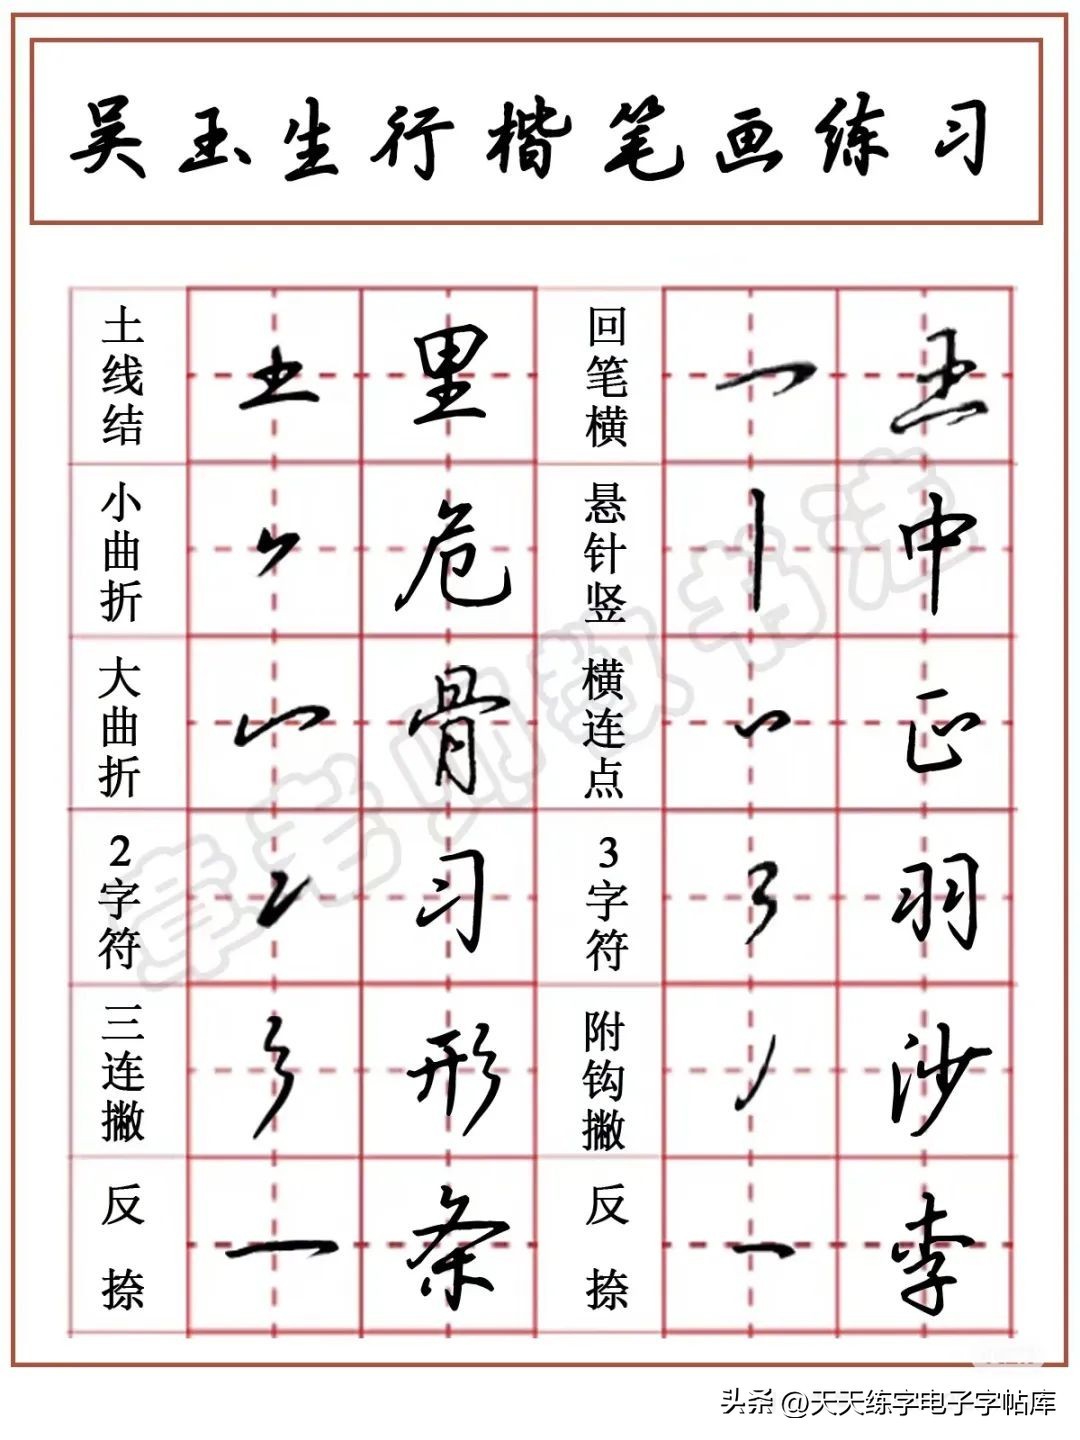 吴玉生行楷笔画练习
土线结 里 回笔横
小曲折 危 悬针竖 中
大曲折 骨 横连点 正
2字符 习 3字符 羽
三连撇 形 附钩撇 沙
反捺 条 反捺 李
章老师教书法
头条 @天天练字电子字帖库